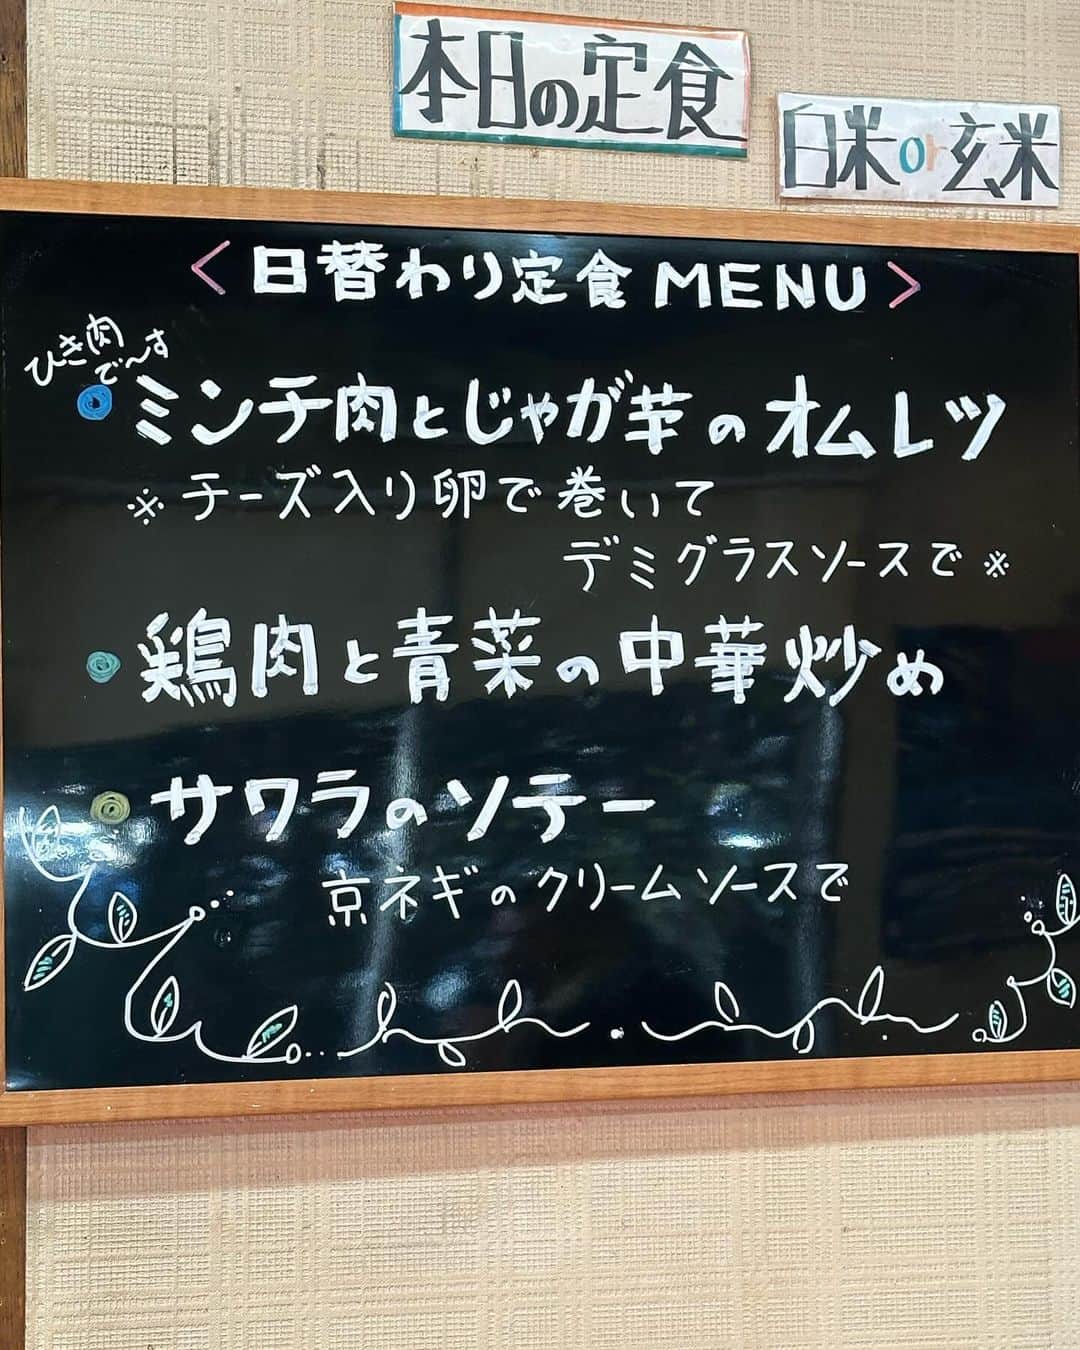 本日の定食
白米or玄米
<日替わり定食MENU>
ひき肉
で〜す
ミンチ肉とじゃが芋のオムレツ
※チーズ入り卵で巻いて
デミグラスソースで※
鶏肉と青菜の中華炒め
サワラのソテー
京ネギのクリームソースで